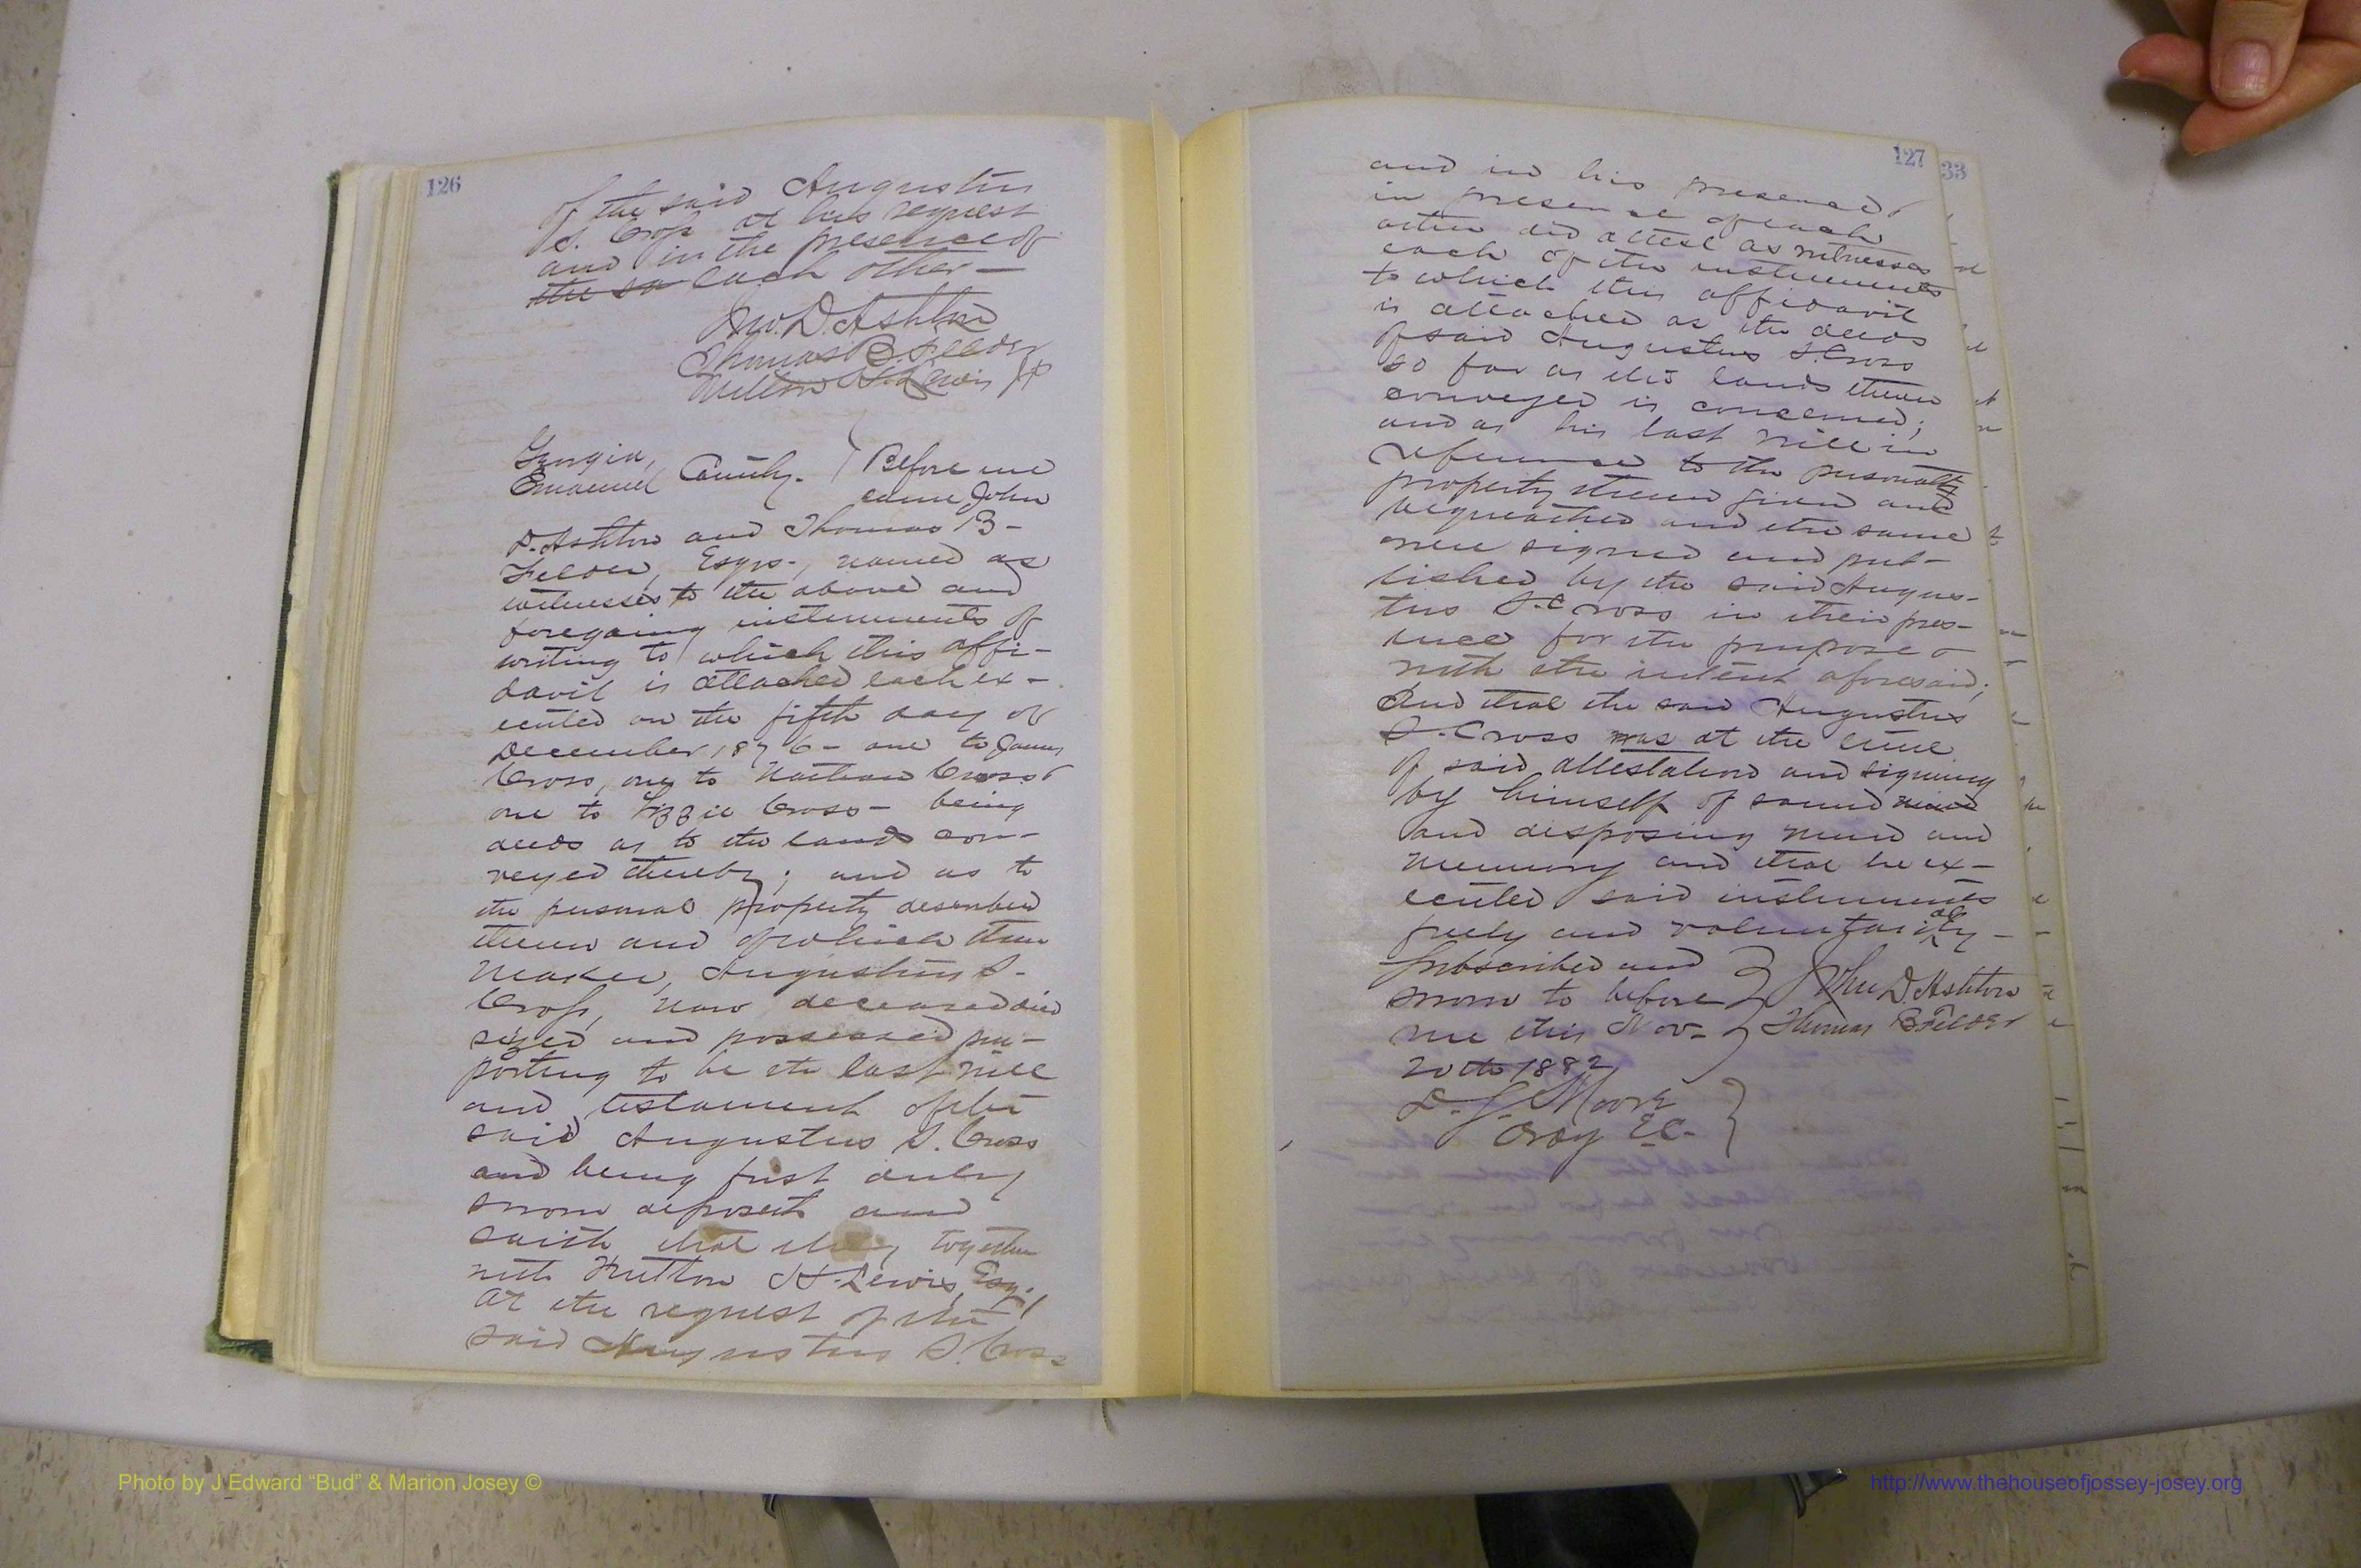 126
of the said Augustus
S. Cross at his request
and in the presence of
the sa each other —
Jno. D. Ashton
Thomas B. Felder
H. Lewis JP
Georgia,
Emanuel County. Before me
came John
D. Ashton and Thomas B-
Felder, Esqrs., named as
witnesses to the above and
foregoing instruments of
writing to which this affi-
davit is attached each ex-
ecuted on the fifth day of
December 1876 - one to James
Cross, one to Nathan Cross &
one to Lizzie Cross - being
deeds as to the lands con-
veyed thereby; and as to
the personal property described
therein and of which the
maker, Augustus S.
Cross, now deceased died
sized and possessed pur-
porting to be the last will
and testament of the
said Augustus S. Cross
and being first duly
sworn deposeth and
saith that they together
with H. Lewis, Esq.,
at the request of the
said Augustus S. Cross
127
33
and in his presence &
in presence of each
other did attest as witnesses
each of the instruments
to which this affidavit
is attached as the deeds
of said Augustus S. Cross
so far as the lands therein
conveyed is concerned;
and as his last will in
reference to the personalty
property therein given and
bequeathed and the same
were signed and pub-
lished by the said Augus-
tus S. Cross in their pres-
ence for the purpose &
with the intent aforesaid;
And that the said Augustus
S. Cross was at the time
of said attestation and signing
by himself of sound mind
and disposing mind and
memory and that he ex-
ecuted said instruments
freely and voluntarily -
Subscribed and John D. Ashton
sworn to before Thomas B Felder
me this Nov-
20th 1882
Moore
Ordy E.C.
Photo by J Edward “Bud” & Marion Josey ©
http://www.thehouseofjossey-josey.org